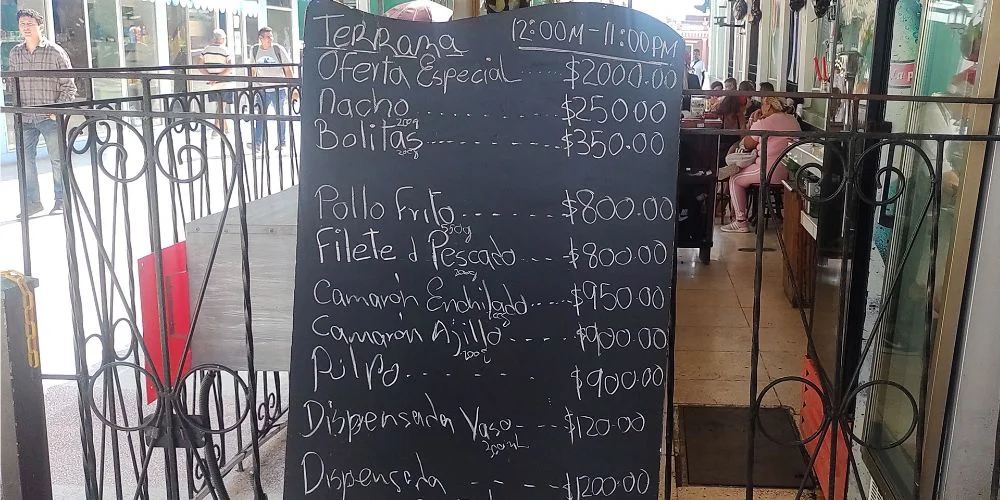 Terraza 12:00M-11:00PM
Oferta Especial ..... $2000.00
Nacho ............. $250.00
200g
Bolitas ------------ $350.00
200g
Pollo Frito ---------- $800.00
550g
Filete d Pescado ------ $800.00
200g
Camarón Enchilado ---- $950.00
Camarón Ajillo ---- $900.00
200g
Pulpo ---------- $900.00
Dispensada Vaso --- $120.00
Dispensada - - - - $1200.00